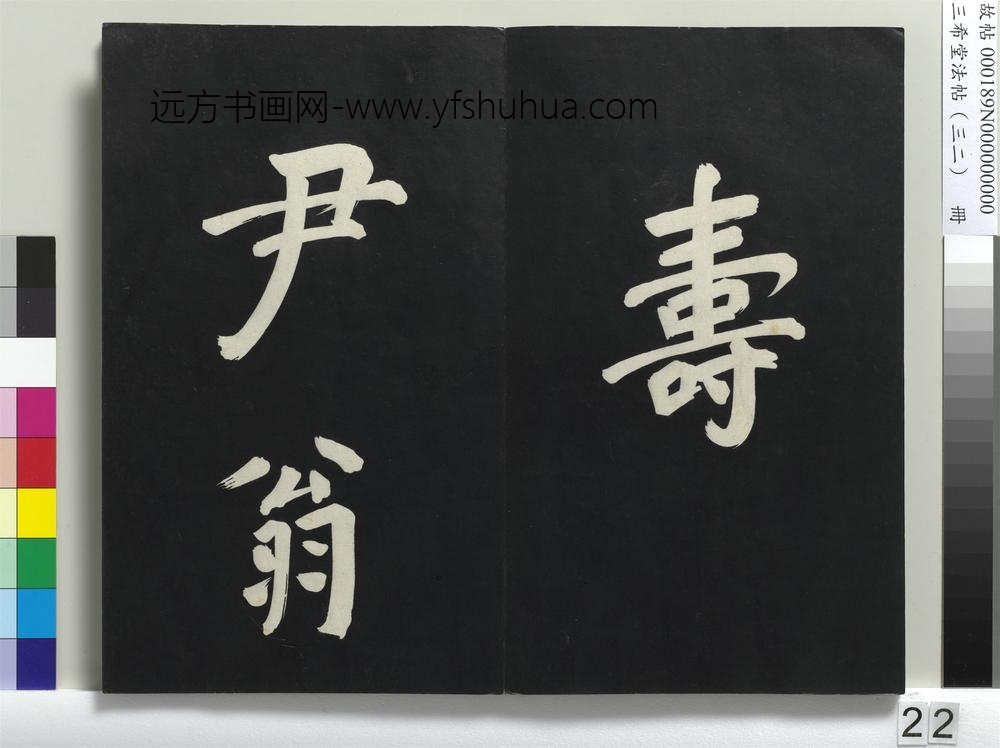 远方书画网-www.yfshuhua.com
壽
尹翁
故帖 000189N000000000
三希堂法帖（三二） 冊
22